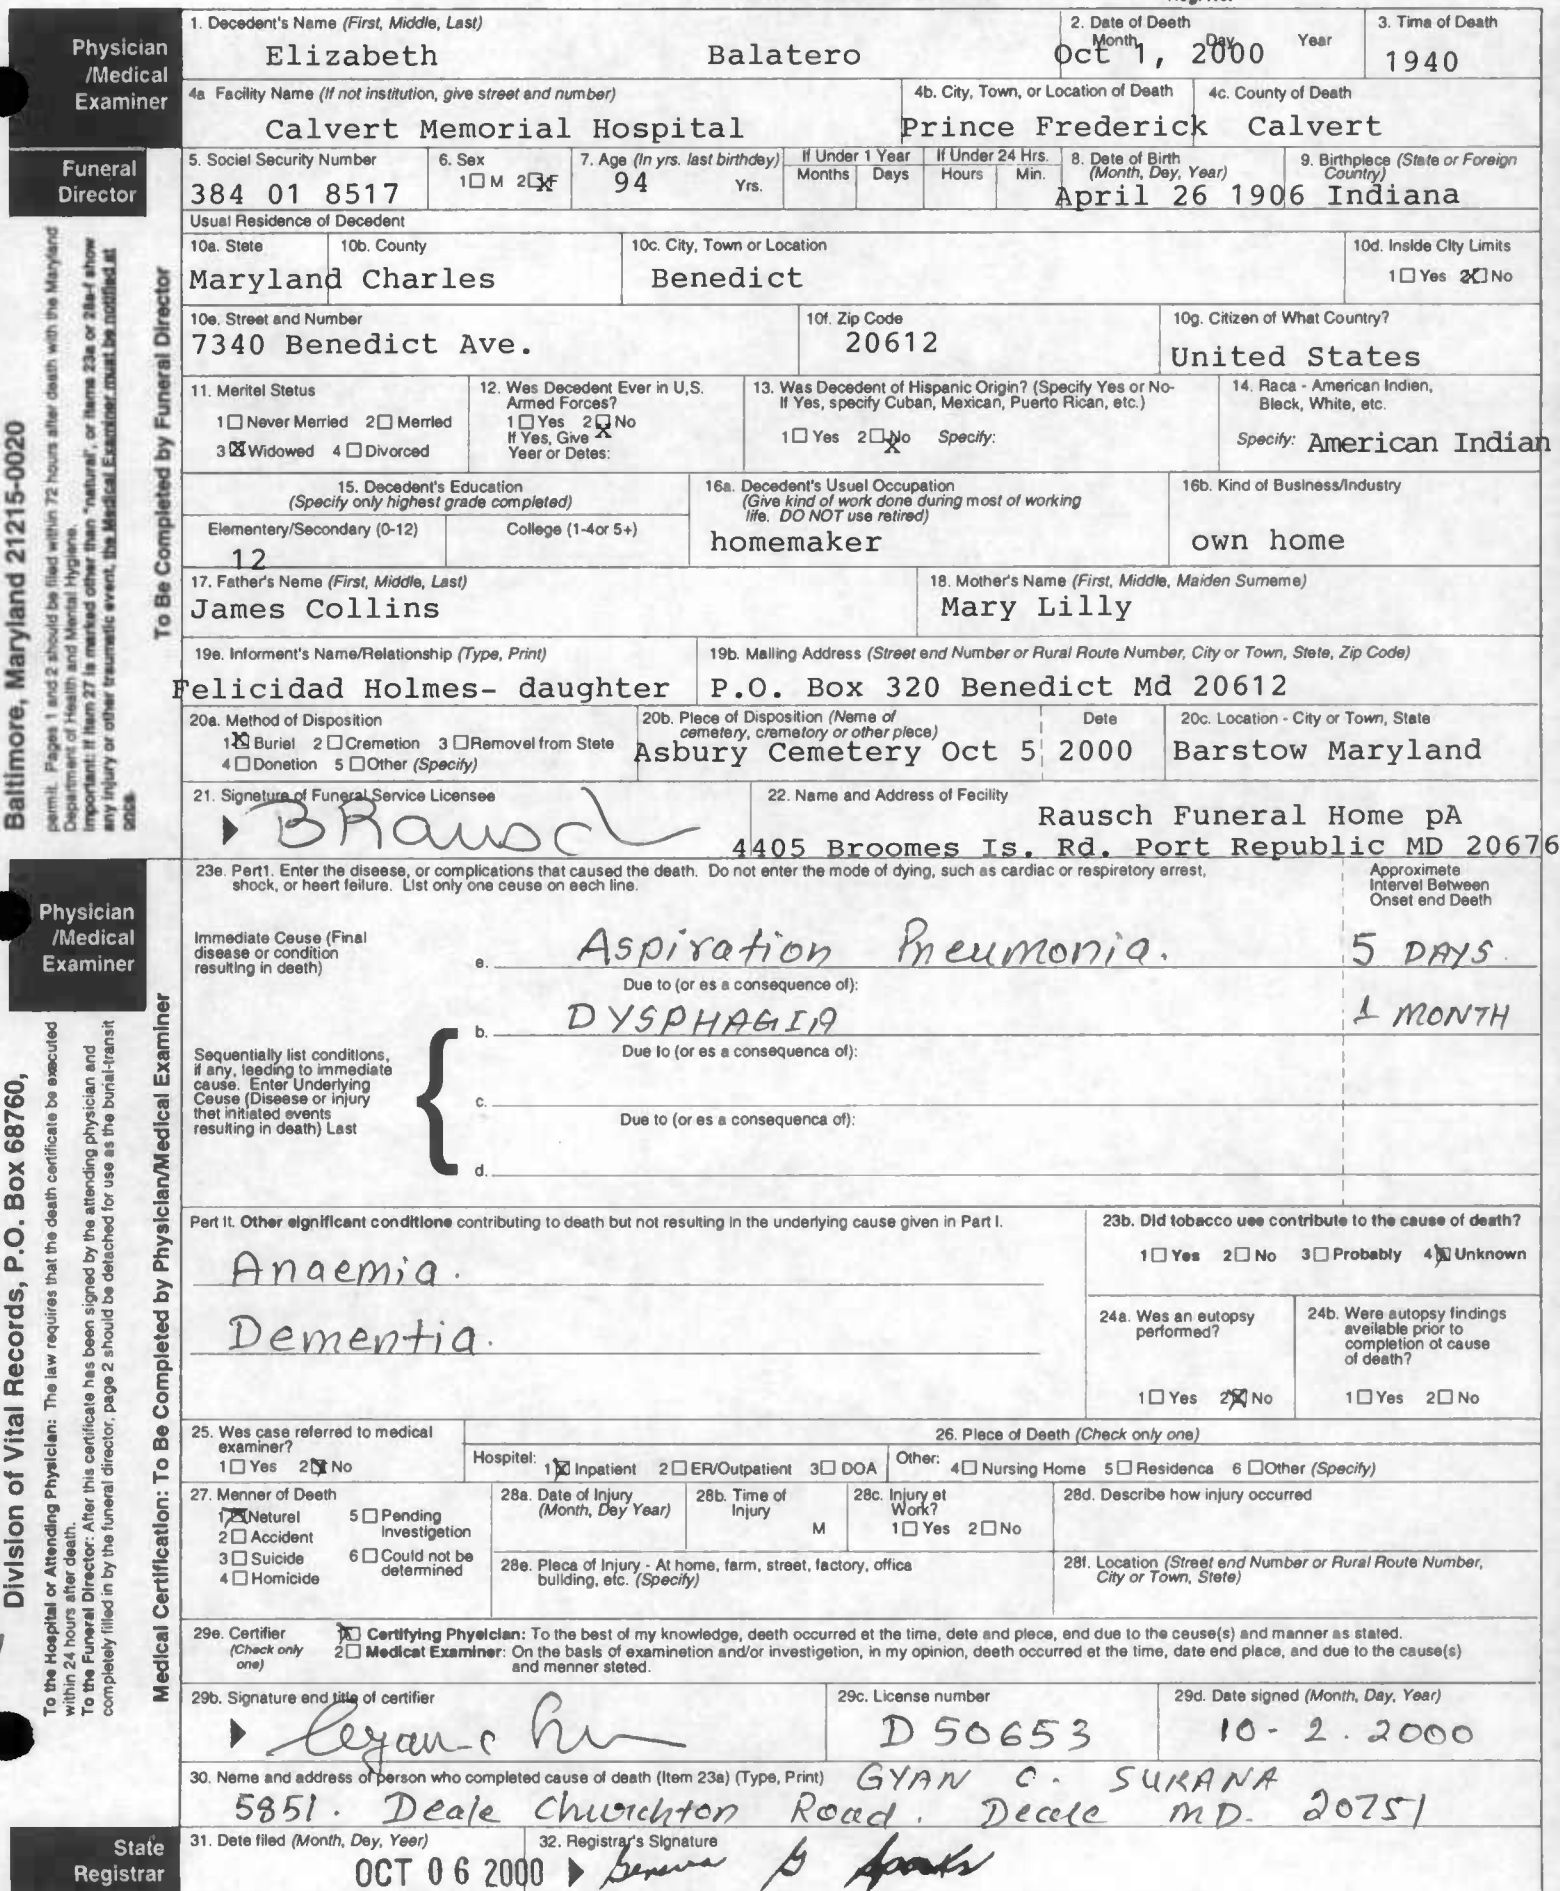 Physician
/Medical
Examiner
1. Decedent's Name (First, Middle, Last)
Elizabeth Balatero
2. Date of Deeth
Month Day Year
Oct 1, 2000
3. Tima of Death
1940
4a Facility Name (If not institution, give street and number)
Calvert Memorial Hospital
4b. City, Town, or Location of Death
Prince Frederick
4c. County of Death
Calvert
Funeral
Director
5. Sociel Security Number
384 01 8517
6. Sex
1☐ M 2☒F
7. Age (In yrs. last birthday)
94 Yrs.
If Under 1 Year
Months Days
If Under 24 Hrs.
Hours Min.
8. Dete of Birth
(Month, Dey, Year)
April 26 1906
9. Birthplece (Stete or Foreign
Country)
Indiana
Usual Residence of Decedent
10a. Stete
Maryland
10b. County
Charles
10c. City, Town or Location
Benedict
10d. Inside City Limits
1☐ Yes 2☒ No
10e. Street and Number
7340 Benedict Ave.
10f. Zip Code
20612
10g. Citizen of What Country?
United States
11. Meritel Status
1☐ Never Merried 2☐ Merried
3☒ Widowed 4☐ Divorced
12. Wes Decedent Ever in U,S.
Armed Forces?
1☐ Yes 2☒ No
If Yes, Give
Yeer or Detes:
13. Was Decedent of Hispanic Origin? (Specify Yes or No-
If Yes, specify Cuban, Mexican, Puerto Rican, etc.)
1☐ Yes 2☒ No Specify:
14. Raca - American Indien,
Bleck, White, etc.
Specify: American Indian
15. Decedent's Education
(Specify only highest grade completed)
Elementery/Secondary (0-12)
12
College (1-4or 5+)
16a. Decedent's Usuel Occupation
(Give kind of work done during most of working
life. DO NOT use retired)
homemaker
16b. Kind of Business/Industry
own home
17. Father's Neme (First, Middle, Last)
James Collins
18. Mother's Name (First, Middle, Maiden Sumeme)
Mary Lilly
19e. Informent's Name/Relationship (Type, Print)
Felicidad Holmes- daughter
19b. Malling Address (Street end Number or Rural Route Number, City or Town, Stete, Zip Code)
P.O. Box 320 Benedict Md 20612
20a. Method of Disposition
1☒ Buriel 2☐ Cremetion 3☐ Removel from Stete
4☐ Donetion 5☐ Other (Specify)
20b. Plece of Disposition (Neme of
cemetery, crematory or other plece)
Date
Asbury Cemetery Oct 5 2000
20c. Location - City or Town, State
Barstow Maryland
21. Signeture of Funerel Service Licensee
BRausch
22. Name and Address of Fecility
Rausch Funeral Home pA
4405 Broomes Is. Rd. Port Republic MD 20676
Baltimore, Maryland 21215-0020
permit. Pages 1 and 2 should be filed within 72 hours after death with the Maryland
Department of Health and Mental Hygiene.
Important: If Item 27 is marked other than "natural", or items 23a or 28a-f show
any injury or other traumatic event, the Medical Examiner must be notified at
once.
To Be Completed by Funeral Director
Physician
/Medical
Examiner
23e. Part1. Enter the diseese, or complications that caused the death. Do not enter the mode of dying, such as cardiac or respiratory errest,
shock, or heert feilure. List only one ceuse on eech line.
Approximete
Intervel Between
Onset end Deeth
Immediate Ceuse (Final
disease or condition
resulting in death)
e. Aspiration Pneumonia. 5 DAYS.
Due to (or es a consequence of):
b. DYSPHAGIA 1 MONTH
Sequentially list conditions,
if any, leeding to immediate
cause. Enter Underlying
Ceuse (Diseese or injury
thet initiated events
resulting in death) Last
Due to (or es a consequenca of):
c.
Due to (or es a consequenca of):
d.
Pert II. Other eignificant conditione contributing to death but not resulting in the underlying cause given in Part I.
Anaemia.
Dementia.
23b. Did tobacco uee contribute to the cause of death?
1☐ Yes 2☐ No 3☐ Probably 4☒ Unknown
24a. Wes an eutopsy
performed?
1☐ Yes 2☒ No
24b. Were autopsy findings
aveilable prior to
completion ot cause
of death?
1☐ Yes 2☐ No
25. Wes case referred to medical
exeminer?
1☐ Yes 2☒ No
26. Plece of Deeth (Check only one)
Hospitel: 1☒ Inpatient 2☐ ER/Outpatient 3☐ DOA
Other: 4☐ Nursing Home 5☐ Residenca 6☐ Other (Specify)
27. Menner of Deeth
1☒ Neturel
2☐ Accident
3☐ Suicide
4☐ Homicide
5☐ Pending
Investigetion
6☐ Could not be
determined
28a. Date of Injury
(Month, Dey Year)
28b. Time of
Injury
M
28c. Injury et
Work?
1☐ Yes 2☐ No
28d. Describe how injury occurred
28e. Pleca of Injury - At home, farm, street, factory, offica
building, etc. (Specify)
28f. Location (Street end Number or Rural Route Number,
City or Town, Stete)
29e. Certifier
(Check only
one)
1☒ Certifying Phyeician: To the best of my knowledge, deeth occurred et the time, dete and plece, end due to the ceuse(s) and manner as stated.
2☐ Medicat Examiner: On the basis of examinetion and/or investigetion, in my opinion, deeth occurred et the time, date end place, and due to the cause(s)
and menner steted.
29b. Signature end title of certifier
29c. License number
D 50653
29d. Date signed (Month, Day, Year)
10-2.2000
30. Neme and address of person who completed cause of death (Item 23a) (Type, Print)
GYAN C. SURANA
5851. Deale Churchton Road. Deale MD. 20751
Division of Vital Records, P.O. Box 68760,
To the Hospital or Attending Physician: The law requires that the death certificate be executed
within 24 hours after death.
To the Funeral Director: After this certificate has been signed by the attending physician and
completely filled in by the funeral director, page 2 should be detached for use as the burial-transit
Medical Certification: To Be Completed by Physician/Medical Examiner
State
Registrar
31. Dete filed (Month, Dey, Yeer)
OCT 06 2000
32. Registrar's Signature
Geneva G Sparks